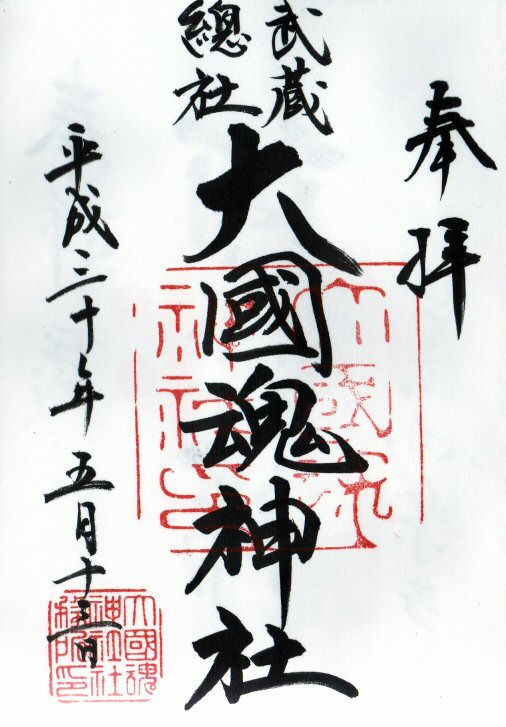 奉拝
武蔵
總社
大國魂神社
平成三十年五月十三日
大國魂
神社社
務所印